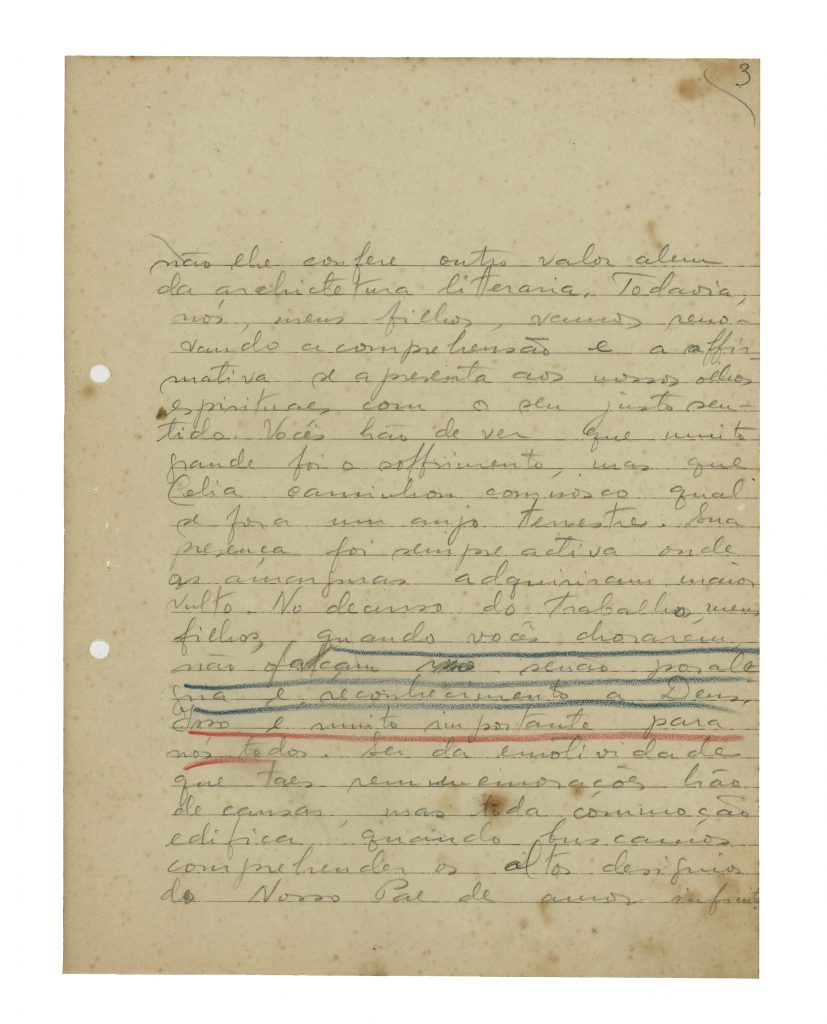 3
não lhe confere outro valor alem
da architetura literaria. Todavia,
nós, meus filhos, vamos reno-
vando a comprehensão e a affir-
mativa se apresenta aos nossos olhos
espirituaes com o seu justo sen-
tido. Vocês hão de ver que muito
grande foi o soffrimento, mas que
Celia caminhou comnosco qual
se fora um anjo terrestre. Sua
presença foi sempre activa onde
as amarguras adquiriram maior
vulto. No decurso do trabalho, meus
filhos, quando vocês chorarem,
não o façam senão por ale
gria e reconhecimento a Deus.
Isso é muito importante para
nos todos. Sei da emotividade
que taes rememorações hão
de causar, mas toda commoção
edifica, quando buscamos
comprehender os altos designios
do Nosso Pae de amor infinito